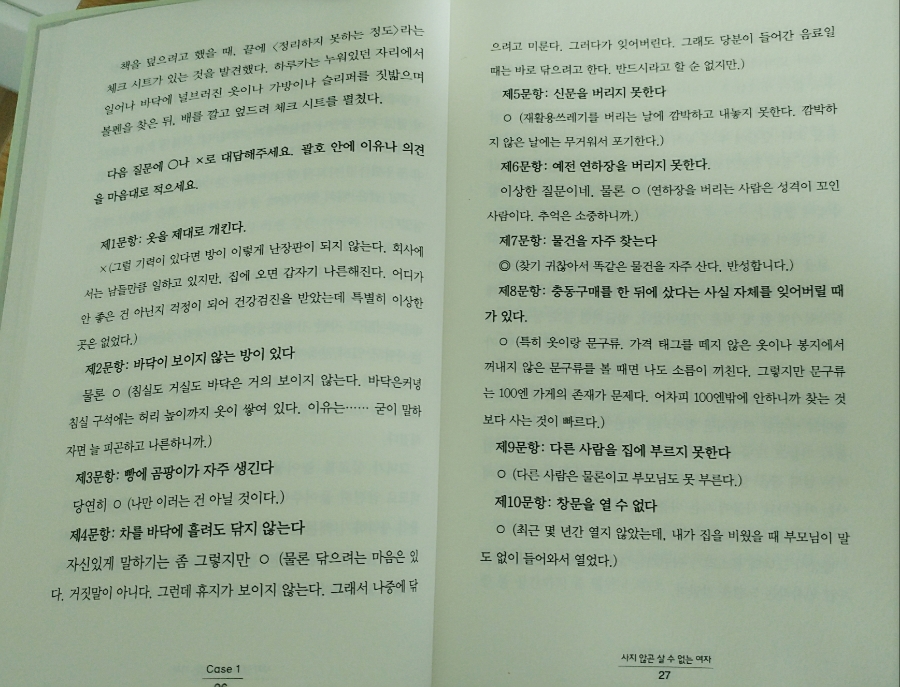 책을 덮으려고 했을 때, 끝에 〈정리하지 못하는 정도〉라는
체크 시트가 있는 것을 발견했다. 하루카는 누워있던 자리에서
일어나 바닥에 널브러진 옷이나 가방이나 슬리퍼를 짓밟으며
볼펜을 찾은 뒤, 배를 깔고 엎드려 체크 시트를 펼쳤다.
다음 질문에 ○나 ×로 대답해주세요. 괄호 안에 이유나 의견
을 마음대로 적으세요.
제1문항: 옷을 제대로 개킨다.
×(그럴 기력이 있다면 방이 이렇게 난장판이 되지 않는다. 회사에
서는 남들만큼 일하고 있지만, 집에 오면 갑자기 나른해진다. 어디가
안 좋은 건 아닌지 걱정이 되어 건강검진을 받았는데 특별히 이상한
곳은 없었다.)
제2문항: 바닥이 보이지 않는 방이 있다
물론 ○ (침실도 거실도 바닥은 거의 보이지 않는다. 바닥은커녕
침실 구석에는 허리 높이까지 옷이 쌓여 있다. 이유는…… 굳이 말하
자면 늘 피곤하고 나른하니까.)
제3문항: 빵에 곰팡이가 자주 생긴다
당연히 ○ (나만 이러는 건 아닐 것이다.)
제4문항: 차를 바닥에 흘려도 닦지 않는다
자신있게 말하기는 좀 그렇지만 ○ (물론 닦으려는 마음은 있
다. 거짓말이 아니다. 그런데 휴지가 보이지 않는다. 그래서 나중에 닦
Case 1
26
으려고 미룬다. 그러다가 잊어버린다. 그래도 당분이 들어간 음료일
때는 바로 닦으려고 한다. 반드시라고 할 순 없지만.)
제5문항: 신문을 버리지 못한다
○ (재활용쓰레기를 버리는 날에 깜박하고 내놓지 못한다. 깜박하
지 않은 날에는 무거워서 포기한다.)
제6문항: 예전 연하장을 버리지 못한다.
이상한 질문이네. 물론 ○ (연하장을 버리는 사람은 성격이 꼬인
사람이다. 추억은 소중하니까.)
제7문항: 물건을 자주 찾는다
◎ (찾기 귀찮아서 똑같은 물건을 자주 산다. 반성합니다.)
제8문항: 충동구매를 한 뒤에 샀다는 사실 자체를 잊어버릴 때
가 있다.
○ (특히 옷이랑 문구류. 가격 태그를 떼지 않은 옷이나 봉지에서
꺼내지 않은 문구류를 볼 때면 나도 소름이 끼친다. 그렇지만 문구류
는 100엔 가게의 존재가 문제다. 어차피 100엔밖에 안하니까 찾는 것
보다 사는 것이 빠르다.)
제9문항: 다른 사람을 집에 부르지 못한다
○ (다른 사람은 물론이고 부모님도 못 부른다.)
제10문항: 창문을 열 수 없다
○ (최근 몇 년간 열지 않았는데, 내가 집을 비웠을 때 부모님이 말
도 없이 들어와서 열었다.)
사지 않곤 살 수 없는 여자
27